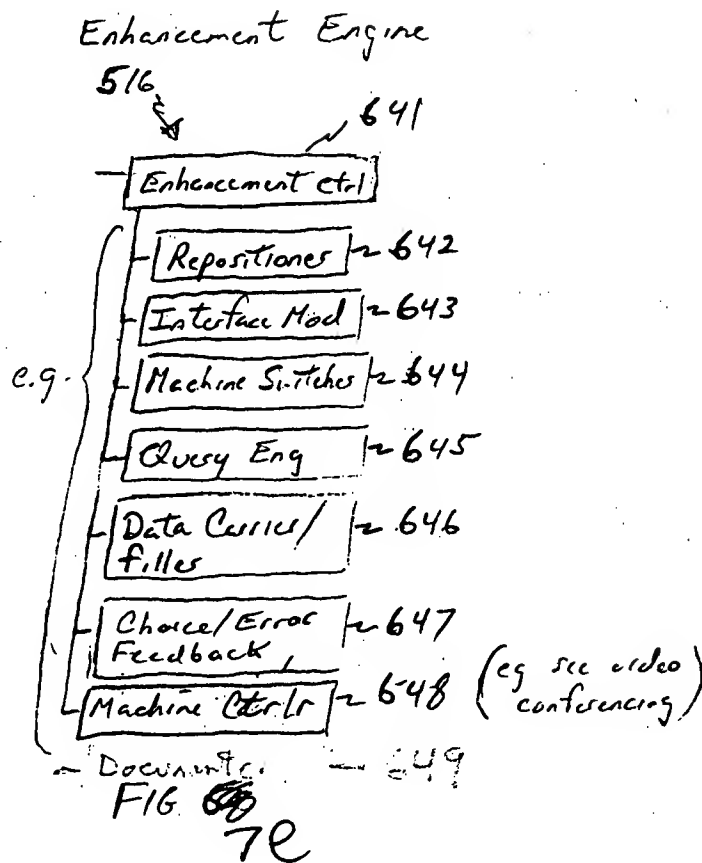 Enhancement Engine
516
641
Enhancement Ctrl
Repositioner ~ 642
Interface Mod ~ 643
e.g.
Machine Switcher ~ 644
Query Eng ~ 645
Data Carrier/ ~ 646
filler
Choice/Error ~ 647
Feedback
Machine Ctrlr ~ 648 (eg see video
conferencing)
- Documents. - 649
FIG
7e